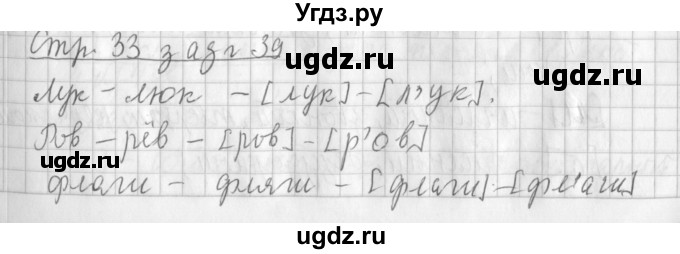 Угдз.ру
Стр. 33 з адг 39
ugdz.ru ugdz.ru
Лук - люк - [лук] - [л'ук].
Ров - рёв - [ров] - [р'ов]
ugdz.ru ugdz.ru
флаги - фляги - [флаги] - [фл'аги]
ugdz.ru ugdz.ru